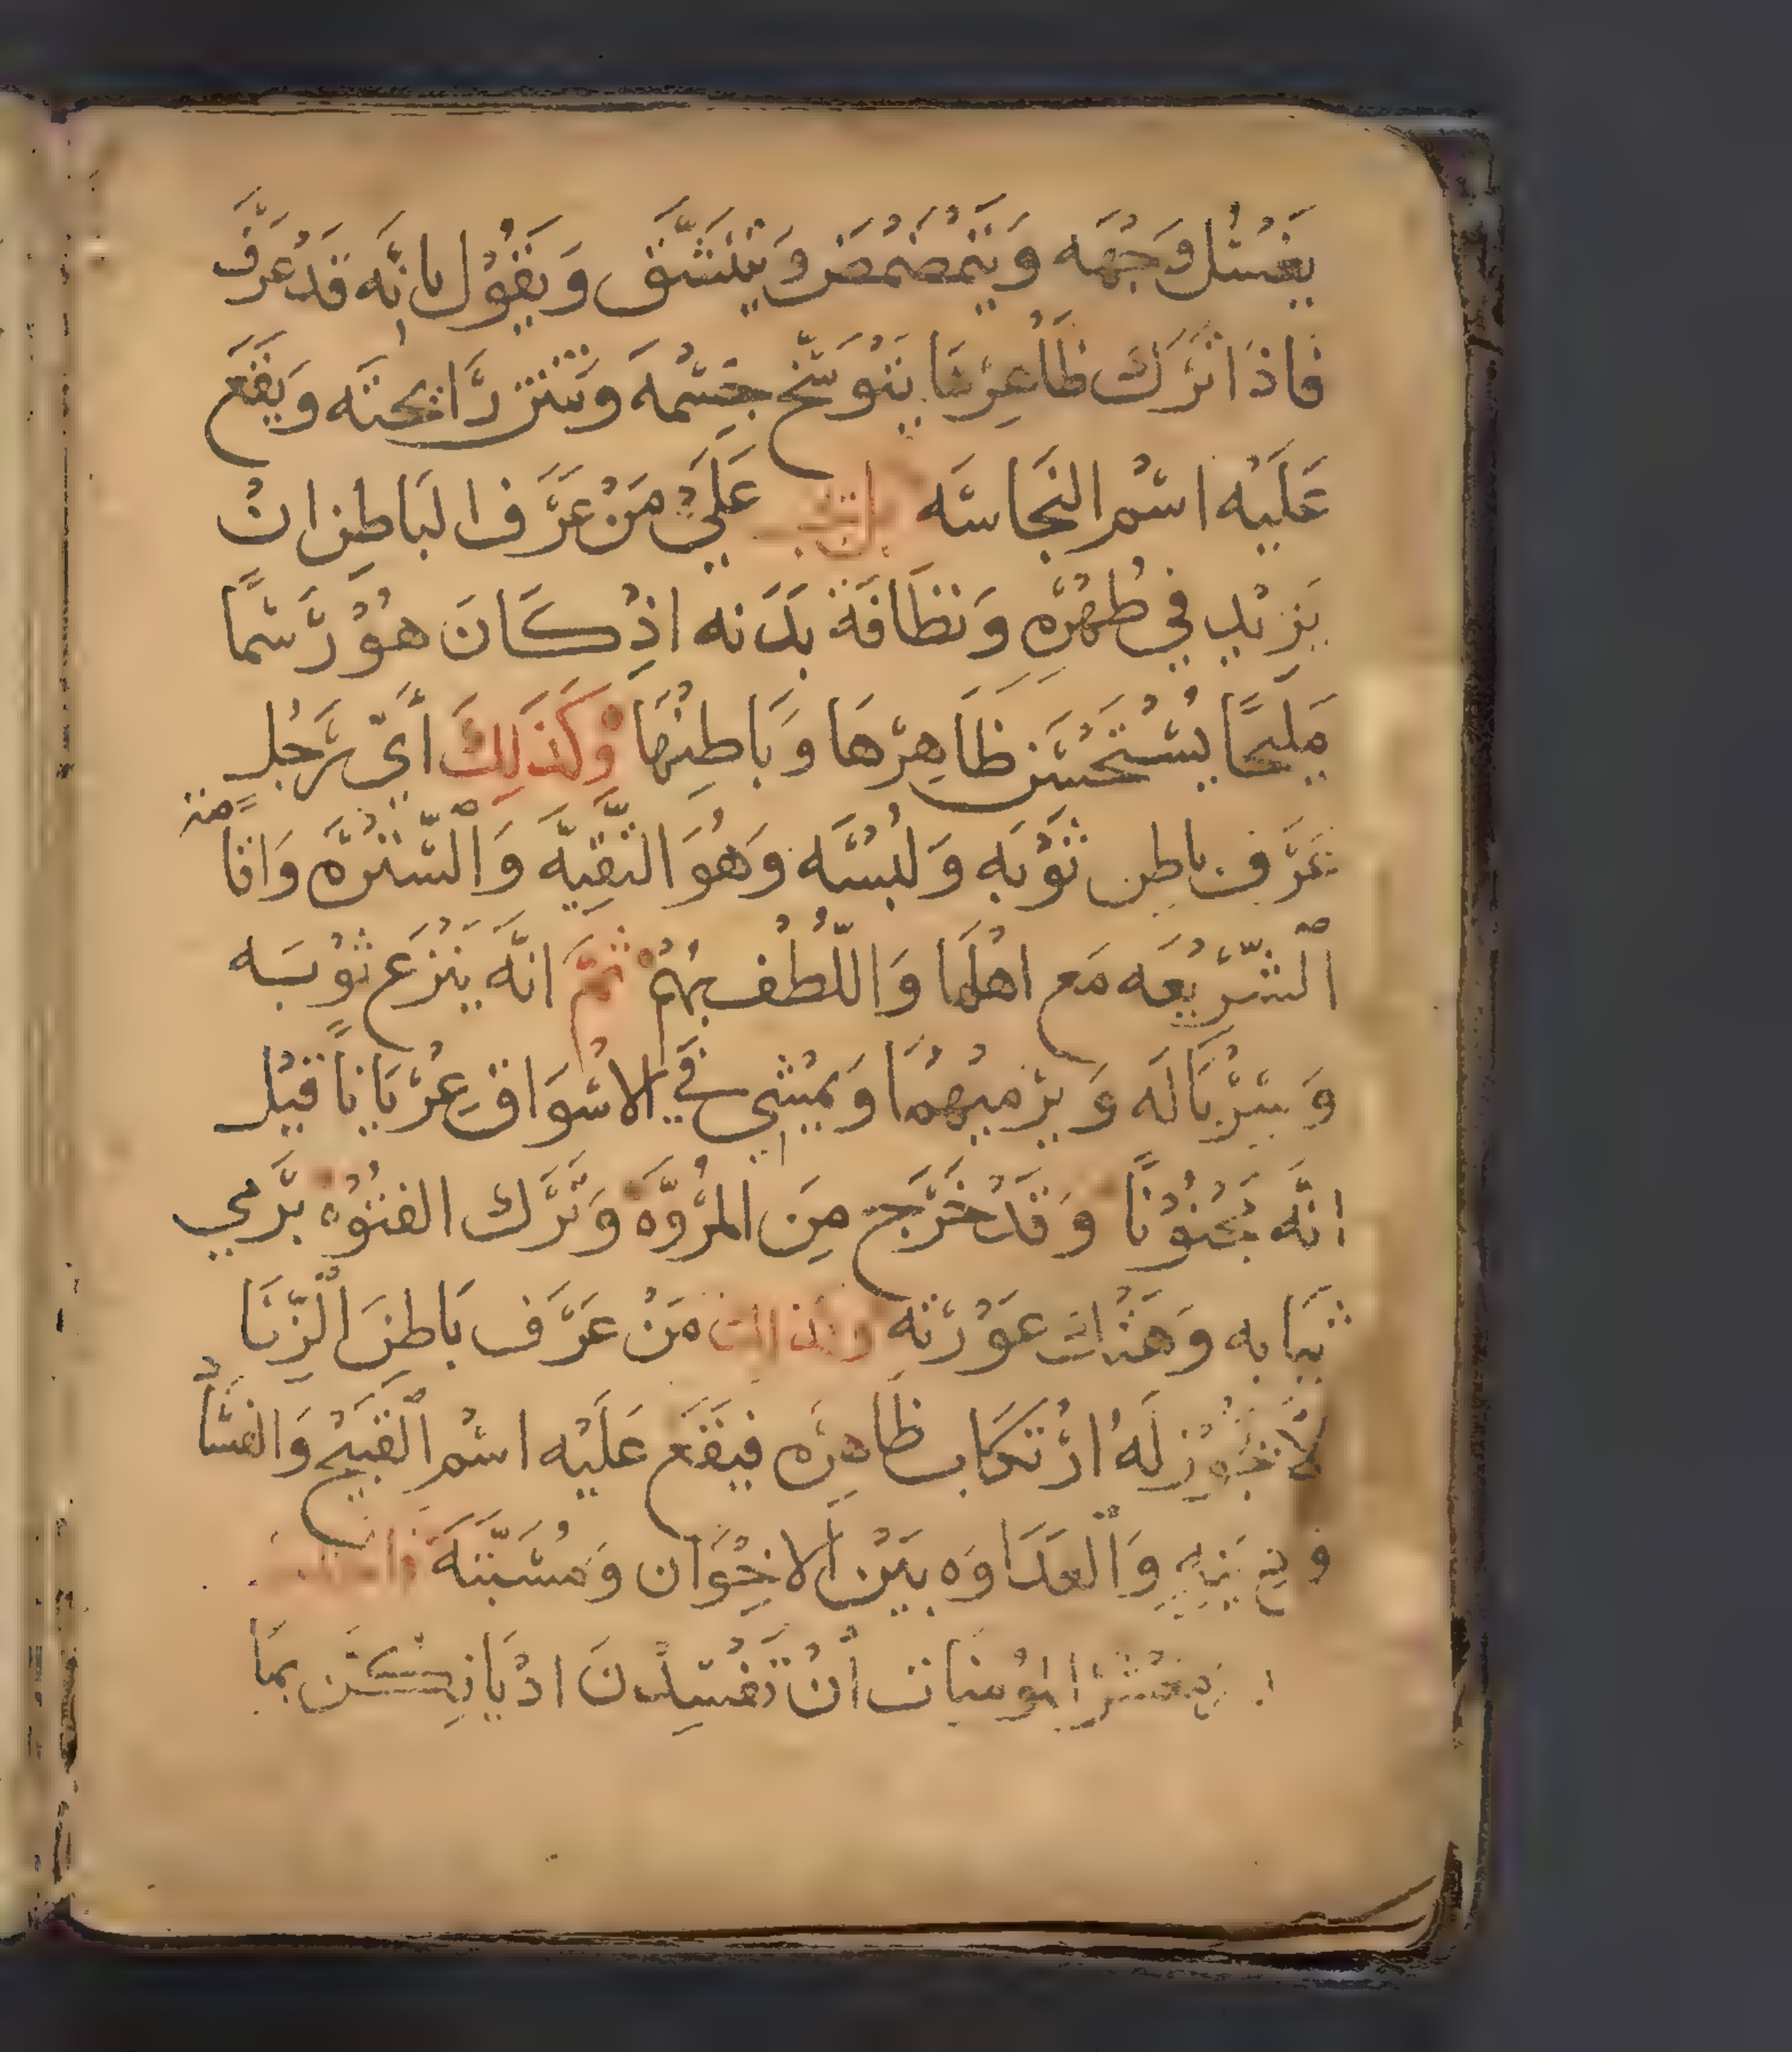 يَغْسْل وَجْهَه وَيَتَمْضمْضَ وَيَتنَشَّق وَيَقُوْل بانَّه قَدْ عَرَف
فَاذَا تَرَكَ ظَاهِرْهَا يَتوَسَّخ جِسْمَه وَتنتن رَايحتَه وَيَقَع
عَلَيْه اسْم النجَاسَه عَليْ مَنْ عَرَف البَاطِن انْ
يَزيْد في طُهْرِه وَنظَافَة بَدَنه اذْ كَانَ هوْ رَسْمًا
مَلِيحًا يُسْتَحْسَن ظَاهِرْهَا وَبَاطِنْهَا وَكَذَلِكَ أَيّ رَجُلٍ
عَرَف باطن ثَوْبَه وَلُبْسَه وَهُوَ التَّقِيَّه وَالسّتْرَه وَاقامَة
الشَّرِيْعَه مَع اهْلَهَا وَاللُّطْف بِهُمْ ثمَّ انَّه يَنْزَع ثَوْبَه
وَسِرْبَالَه وَيَرْميْهُمَا وَيمْشي في الاسْوَاق عُرْيَاناً قيْل
انَّه مَجْنُوْناً وَقَدْ خَرَج مِنَ المرُوَّه وَتَرَك الفتُوْه برَمي
ثيَابه وَهَتْك عَوْرَته وَكَذلكَ مَنْ عَرَف بَاطِنَ الزّنَا
لاَ يَجُوْز لَهُ ارْتكَاب ظَاهِرَه فيَقَع عَلَيْه اسْم القَبيْح وَالفسَاْد
وَالعَدَاوَه بَيْن الاخْوَان وَمُسَبَّتهَ
مَعْشَر المُوْمنَات أنْ تَفْسِدْنَ ادْيَانِكُنَّ بمَا